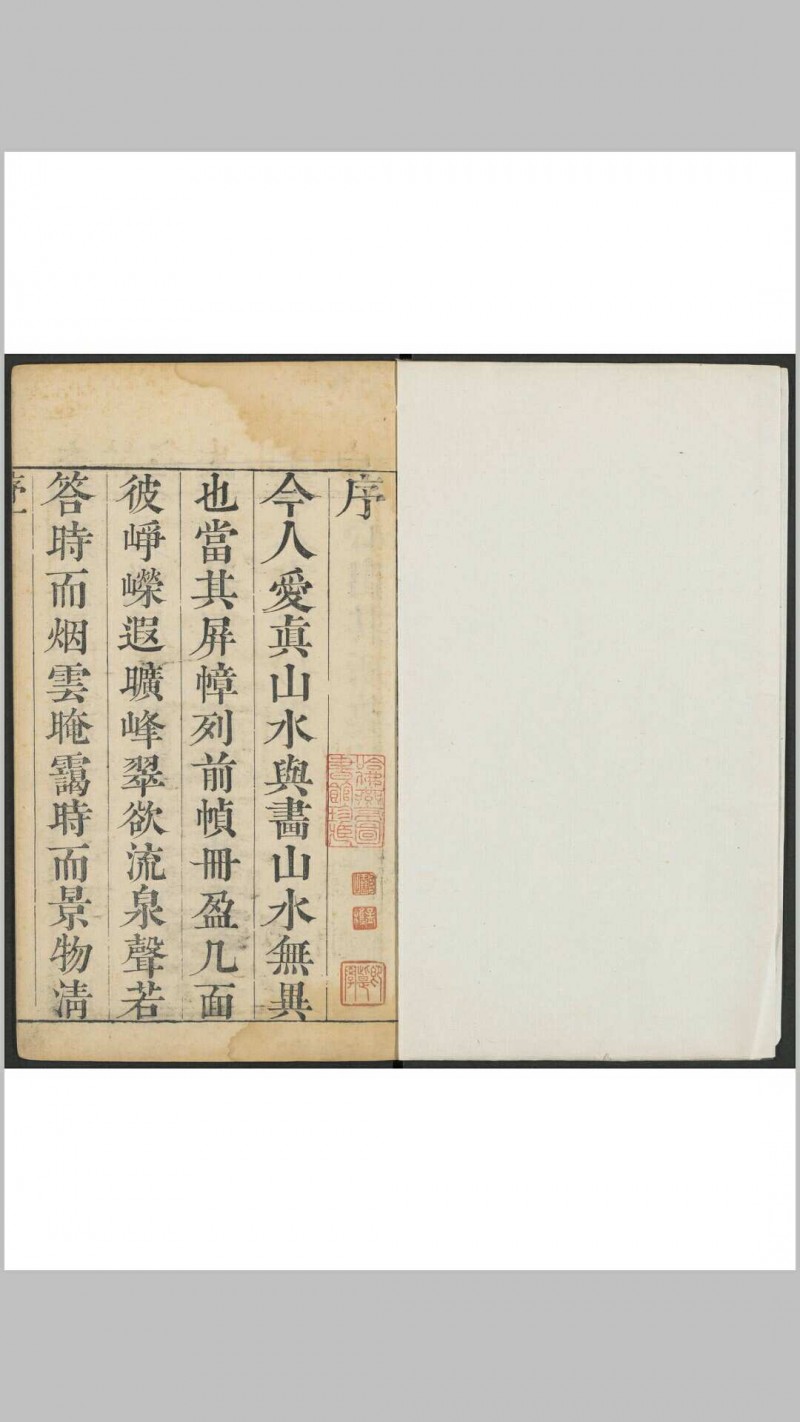 序
今人愛眞山水與畵山水無異
也當其屏幛列前幀冊盈几面
彼崢嶸遐曠峰翠欲流泉聲若
答時而烟雲晻靄時而景物淸